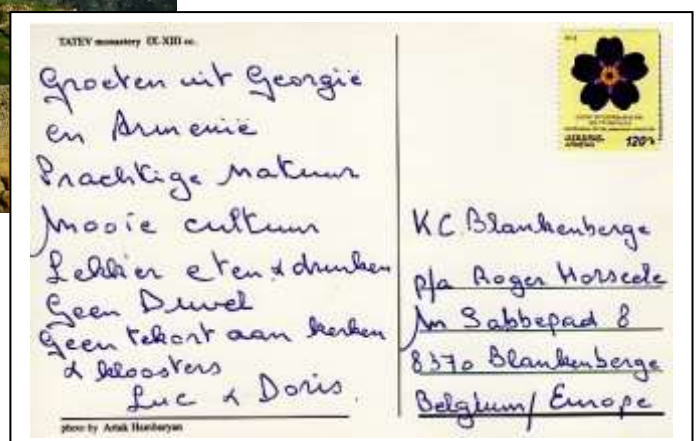 TATEV monastery IX-XIII cc.
Groeten uit Georgië
en Armenië
Prachtige natuur
Mooie cultuur
Lekker eten & drinken
Geen Duvel
Geen tekort aan kerken
& kloosters
Luc & Doris.
photo by Artak Hambaryan
120
KC Blankenberge
p/a Roger
Sabbepad 8
8370 Blankenberge
Belgium/Europe